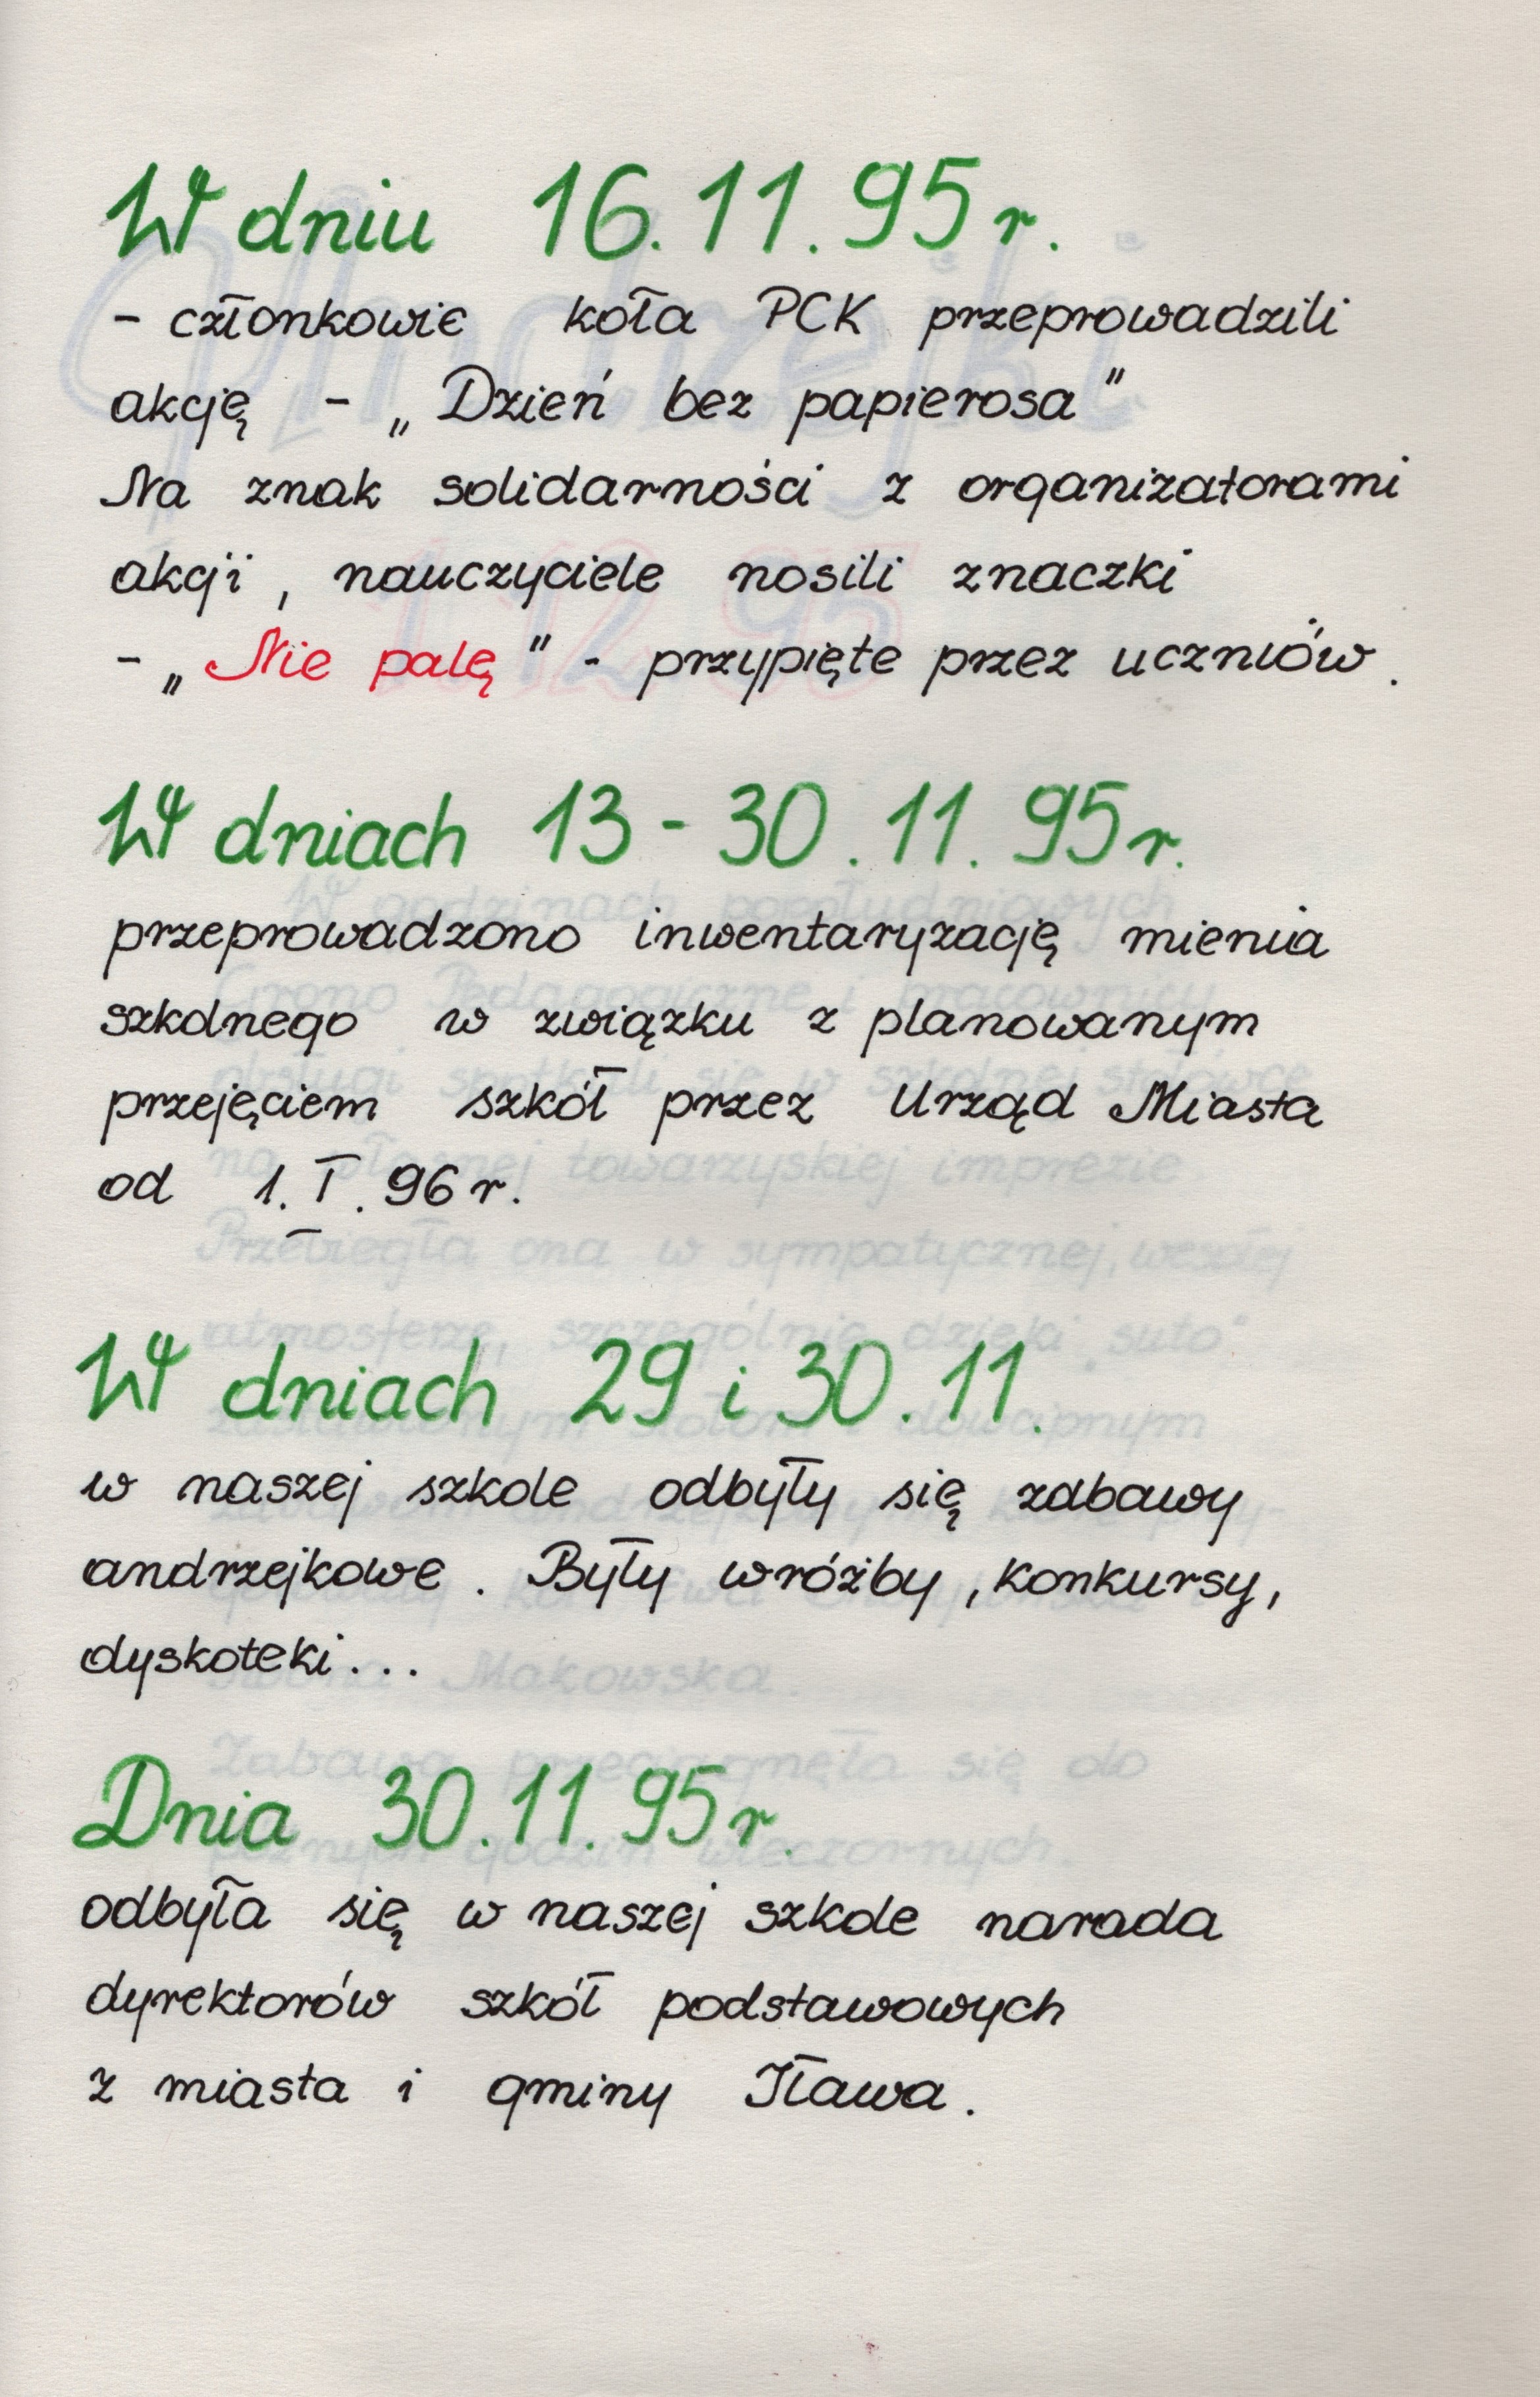 W dniu 16.11.95r.
- członkowie koła PCK przeprowadzili
akcję - „Dzień bez papierosa"
Na znak solidarności z organizatorami
akcji, nauczyciele nosili znaczki
- „Nie palę" - przypięte przez uczniów.
W dniach 13-30.11.95r.
przeprowadzono inwentaryzację mienia
szkolnego w związku z planowanym
przejęciem szkół przez Urząd Miasta
od 1.I.96r.
W dniach 29 i 30.11.
w naszej szkole odbyły się zabawy
andrzejkowe. Były wróżby, konkursy,
dyskoteki...
Dnia 30.11.95r.
odbyła się w naszej szkole narada
dyrektorów szkół podstawowych
z miasta i gminy Iława.